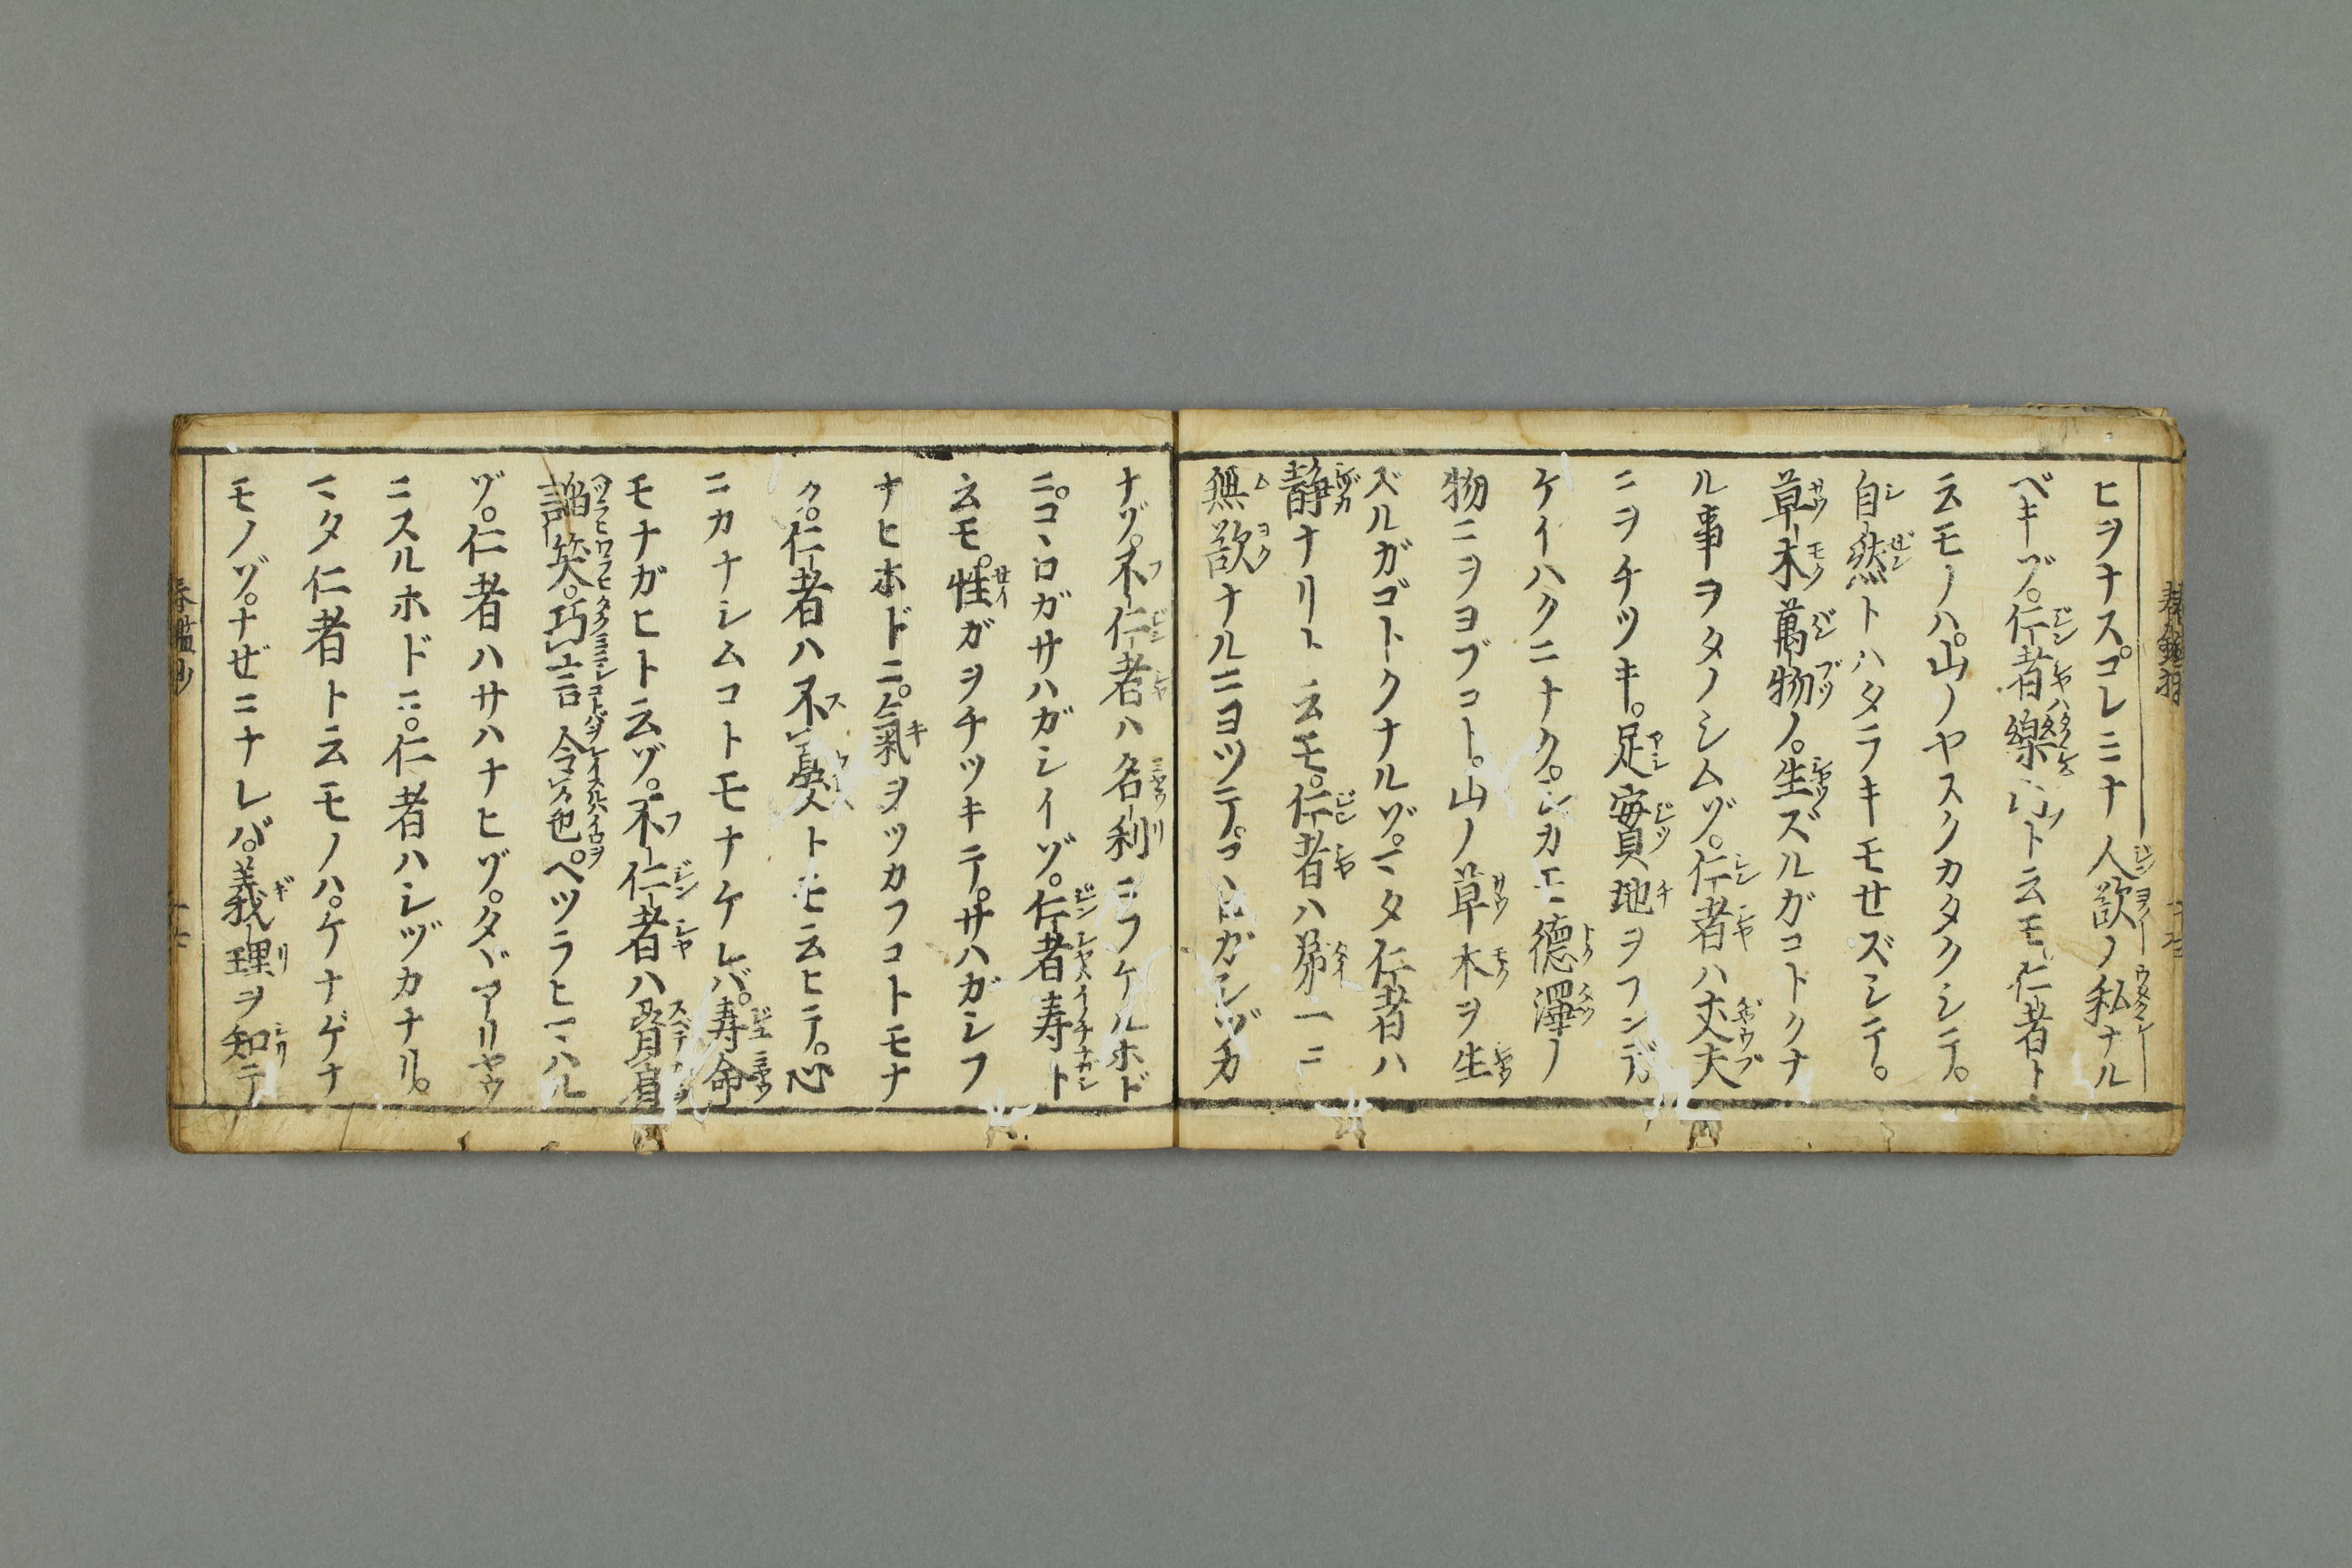 ヒヲナス。コレミナ人欲ノ私ナル
ベキゾ。仁者樂山ト云モ、仁者ト
云モノハ。山ノヤスクカタクシテ。
自然トハタラキモせズシテ。
草木萬物ノ。生ズルガコトクナ
ル事ヲタノシムゾ。仁者ハ丈夫
ニヲチツキ。足實地ヲフンデ。
ケイハクニナク。シカモ德澤ノ
物ニヲヨブコト。山ノ草木ヲ生
ズルガゴトクナルゾ。マタ仁者ハ
静ナリト云モ。仁者ハ第一ニ
無欲ナルニヨツテ。コヽロガシヅカ
ナゾ。不仁者ハ名利ニフケルホド
ニ。コヽロガサハガシイゾ。仁者寿ト
云モ。性ガヲチツキテ。サハガシフ
ナヒホドニ。氣ヲツカフコトモナ
ク。仁者ハ不憂トモ云ヒテ。心
ニカナシムコトモナケレバ。寿命
モナガヒト云ゾ。不仁者ハ脅肩
諂笑。巧言令色。ヘツラヒマハル
ゾ。仁者ハサハナヒゾ。タヾアリヤウ
ニスルホドニ。仁者ハシヅカナリ。
マタ仁者ト云モノハ。ケナゲナ
モノゾ。ナぜニナレバ。義理ヲ知テ
春鑑抄